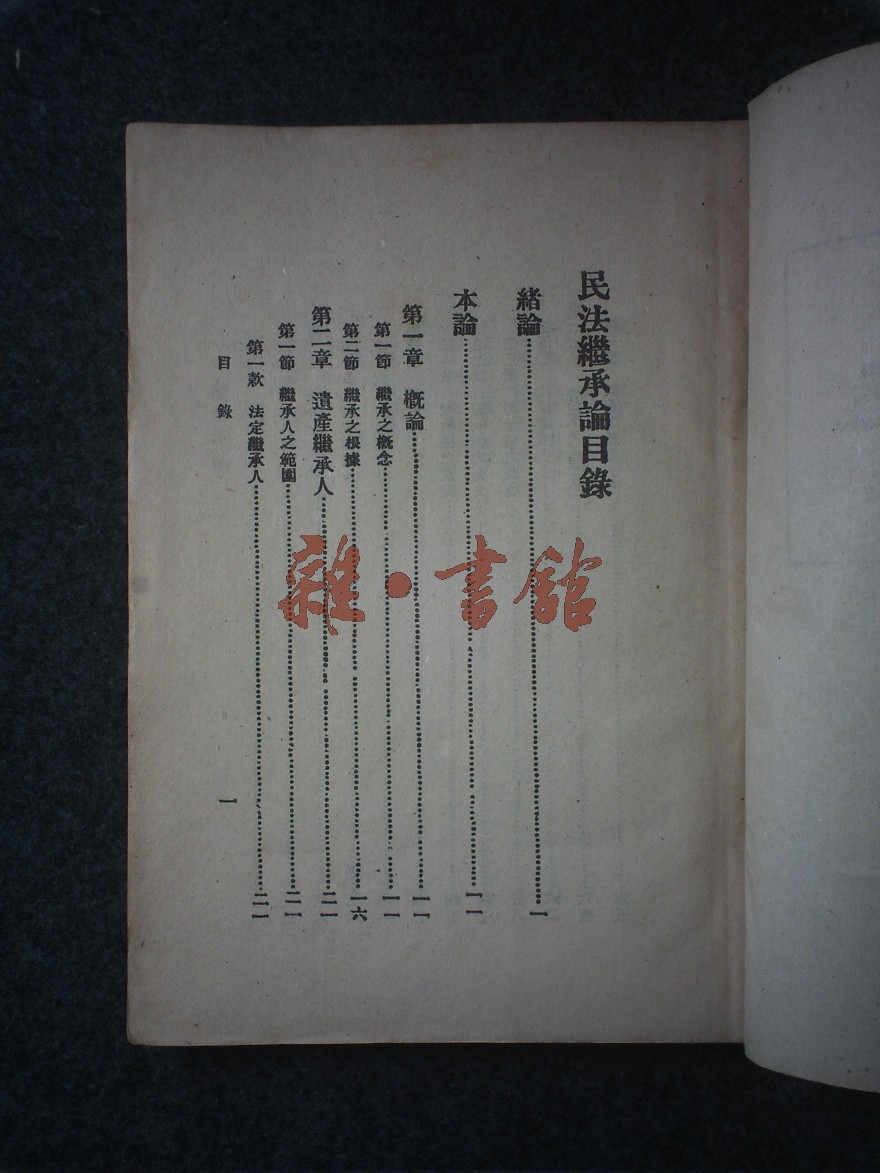 民法繼承論目錄
緒論⋯⋯⋯⋯⋯⋯⋯⋯⋯⋯一
本論⋯⋯⋯⋯⋯⋯⋯⋯⋯⋯一一
第一章 概論⋯⋯⋯⋯⋯⋯⋯⋯⋯⋯一一
第一節 繼承之概念⋯⋯⋯⋯⋯⋯⋯⋯⋯⋯一一
第二節 繼承之根據⋯⋯⋯⋯⋯⋯⋯⋯⋯⋯一六
第二章 遺產繼承人⋯⋯⋯⋯⋯⋯⋯⋯⋯⋯二一
第一節 繼承人之範圍⋯⋯⋯⋯⋯⋯⋯⋯⋯⋯二一
第一款 法定繼承人⋯⋯⋯⋯⋯⋯⋯⋯⋯⋯二一
目錄 一
雜·書館